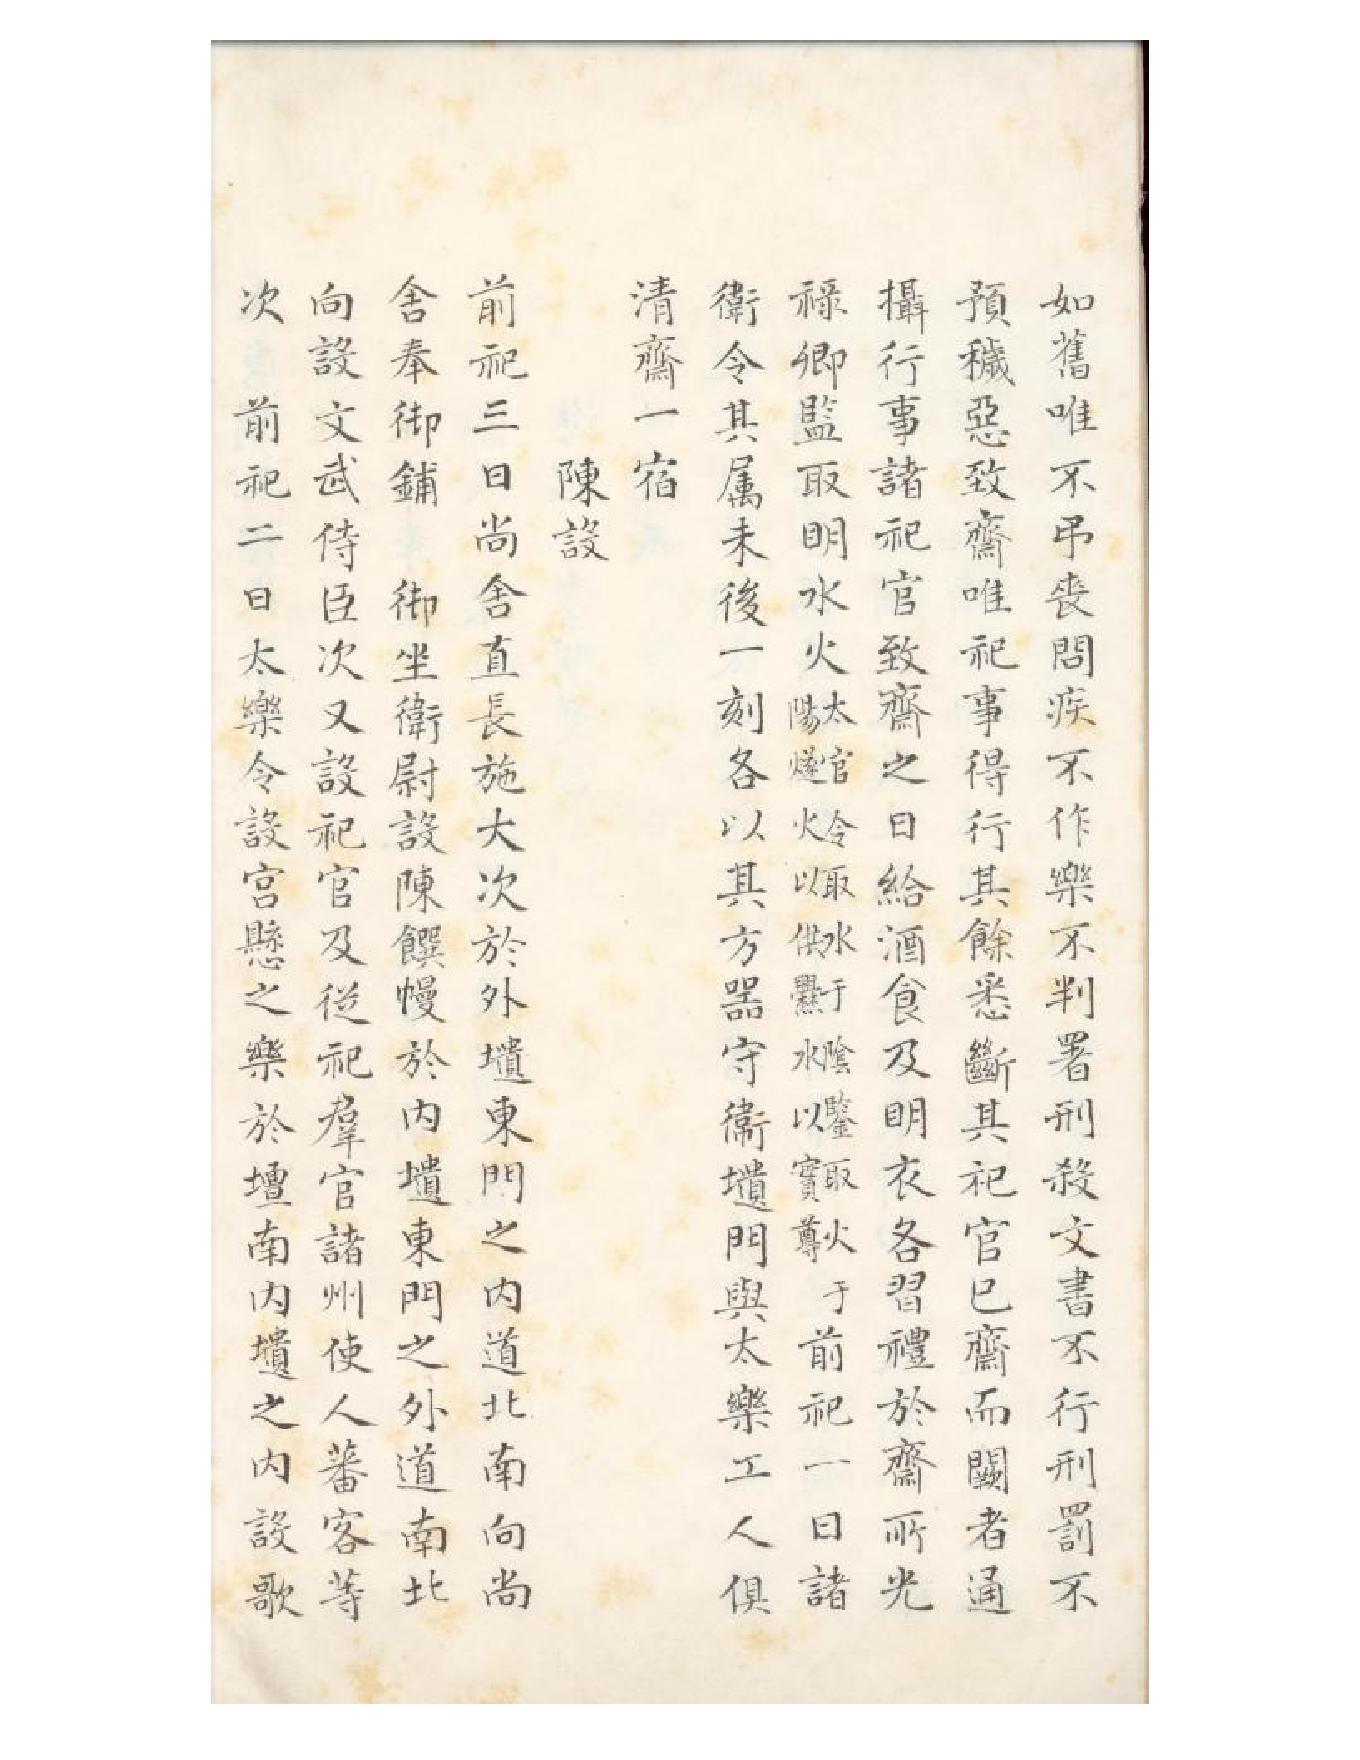 如舊唯不弔喪問疾不作樂不判署刑殺文書不行刑罰不
預穢惡致齋唯祀事得行其餘悉斷其祀官已齋而闕者通
攝行事諸祀官致齋之日給酒食及明衣各習禮於齋所光
祿卿監取明水火太官令取水于陰鑒取火于陽燧火以供爨水以實尊前祀一日諸
衛令其属未後一刻各以其方器守衛壝門與太樂工人俱
清齋一宿
陳設
前祀三日尚舍直長施大次於外壝東門之内道北南向尚
舍奉御鋪御坐衛尉設陳饌幔於内壝東門之外道南北
向設文武侍臣次又設祀官及從祀羣官諸州使人蕃客等
次前祀二日太樂令設宫懸之樂於壇南内壝之内設歌